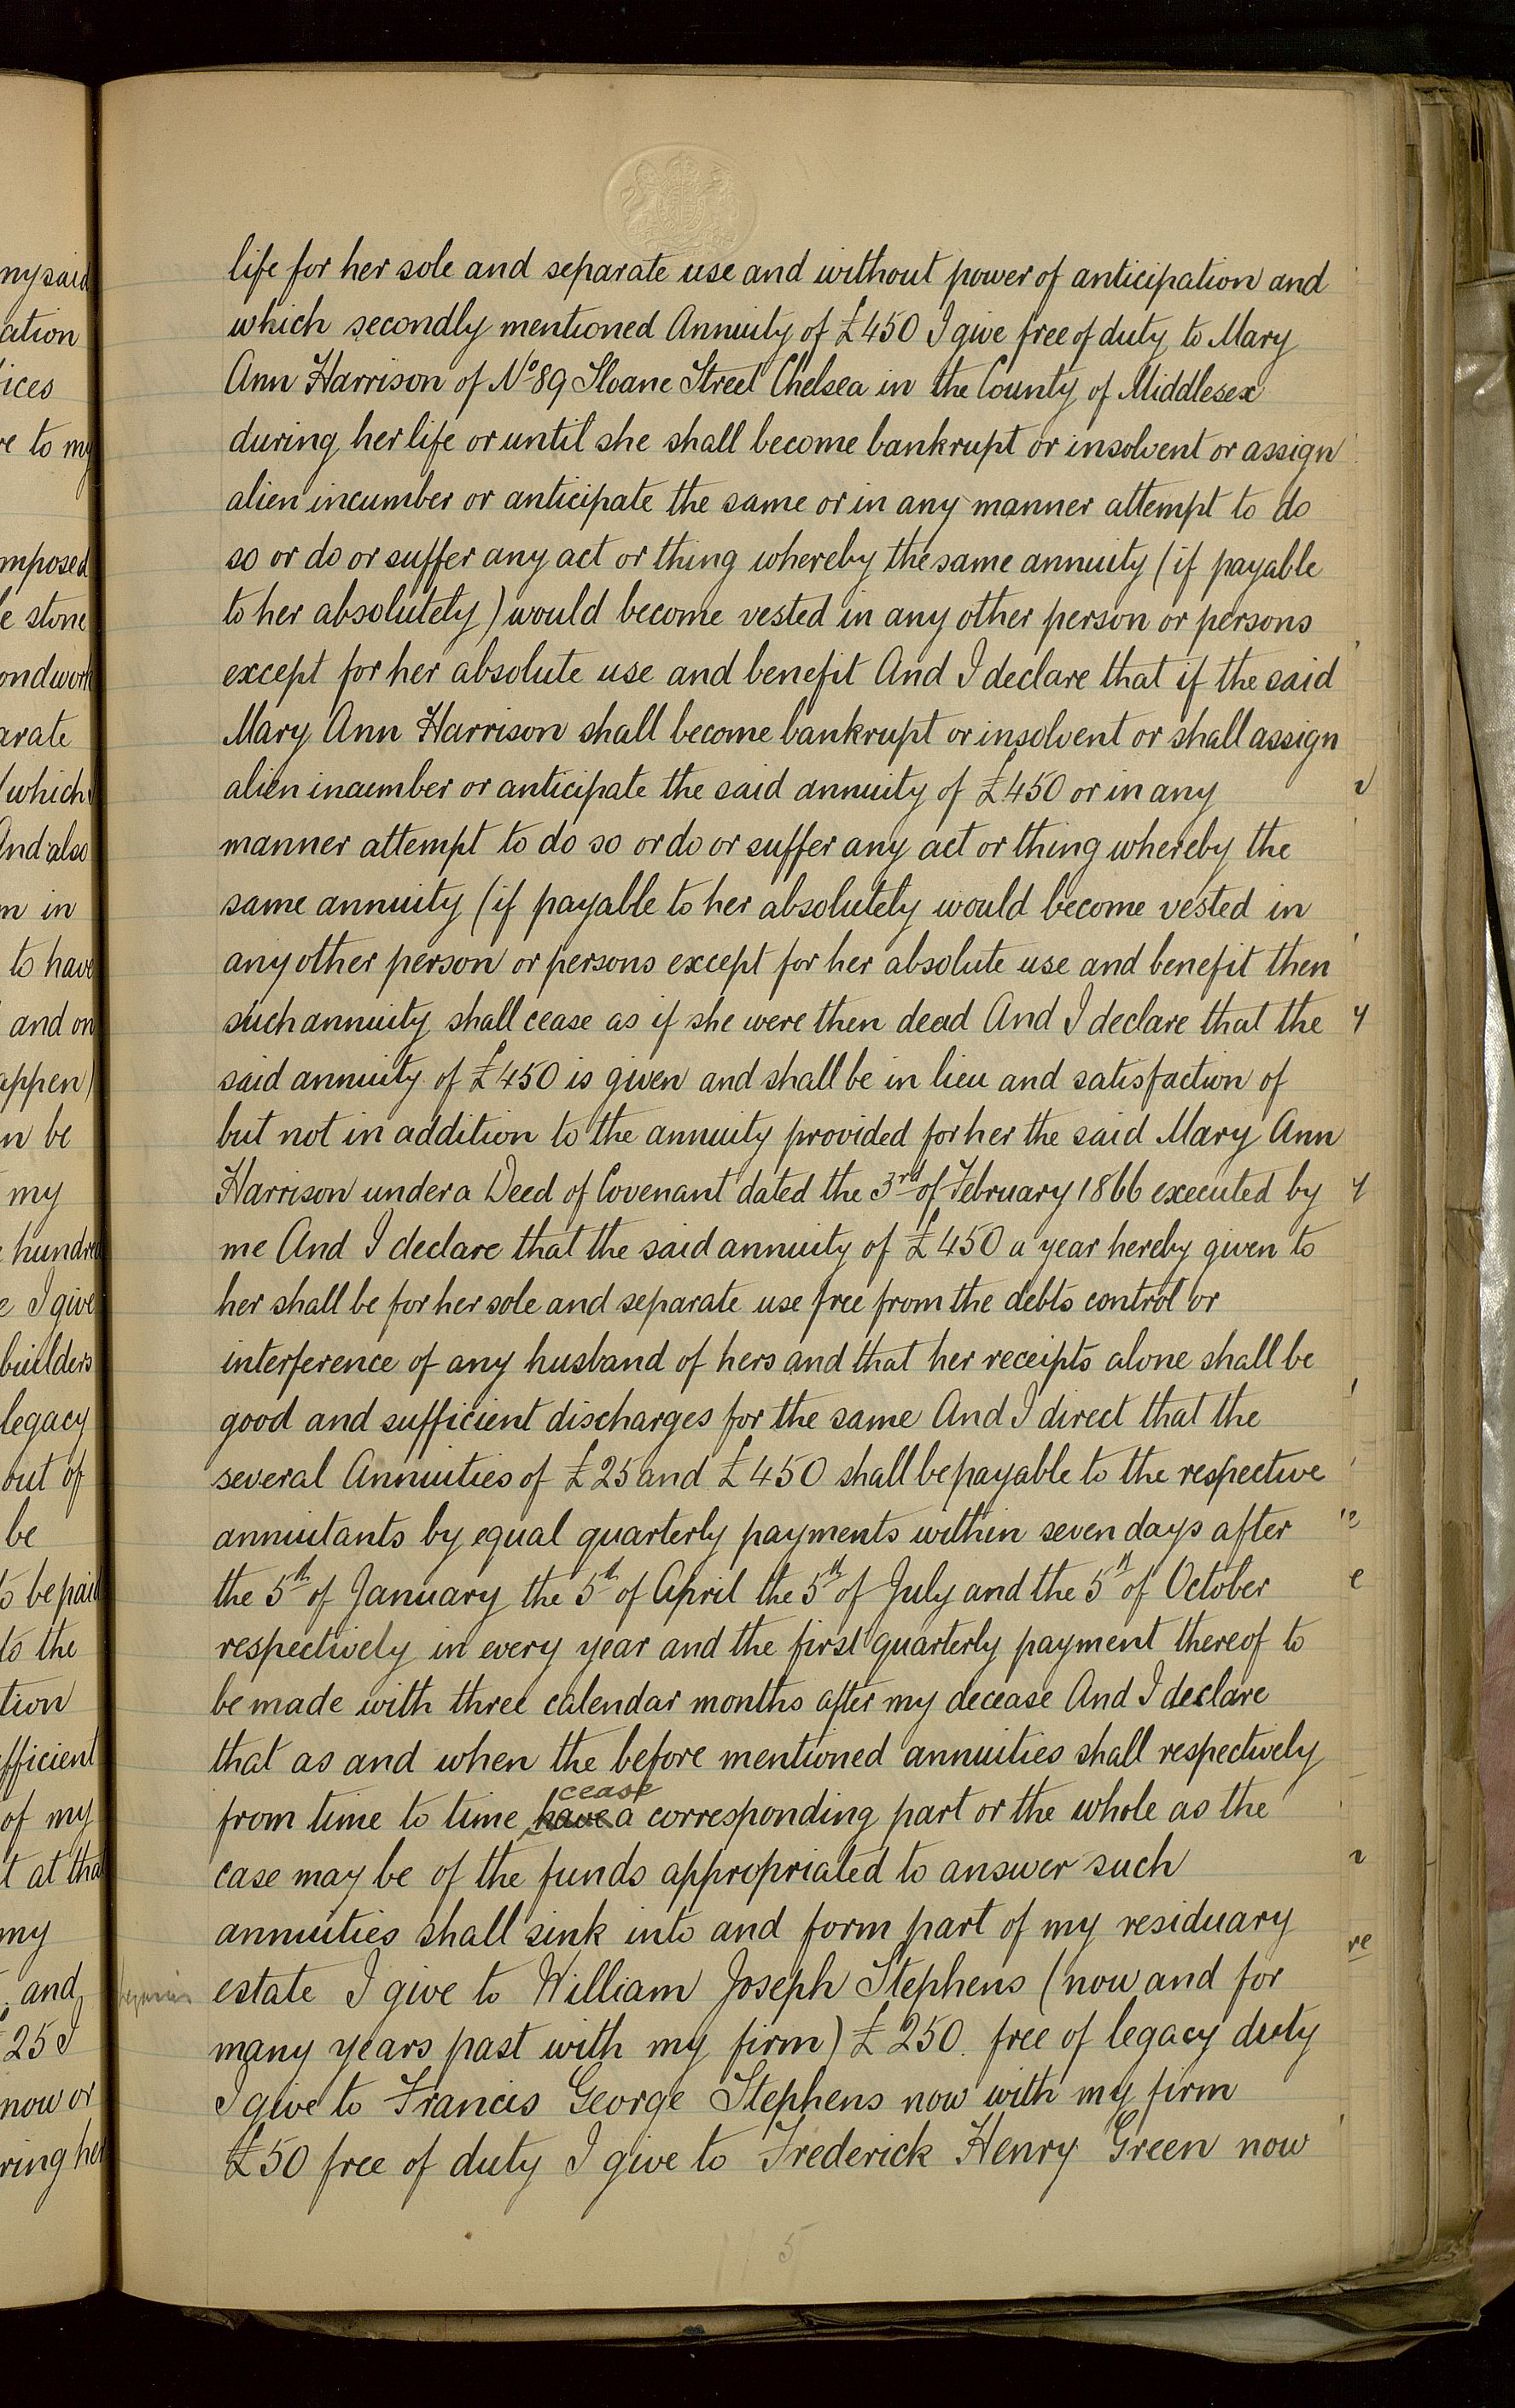 life for her sole and separate use and without power of anticipation and
which secondly mentioned Annuity of £450 I give free of duty to Mary
Ann Harrison of No 89 Sloane Street Chelsea in the County of Middlesex
during her life or until she shall become bankrupt or insolvent or assign
alien incumber or anticipate the same or in any manner attempt to do
so or do or suffer any act or thing whereby the same annuity (if payable
to her absolutely) would become vested in any other person or persons
except for her absolute use and benefit And I declare that if the said
Mary Ann Harrison shall become bankrupt or insolvent or shall assign
alien incumber or anticipate the said annuity of £450 or in any
manner attempt to do so or do or suffer any act or thing whereby the
same annuity (if payable to her absolutely would become vested in
any other person or persons except for her absolute use and benefit then
such annuity shall cease as if she were then dead And I declare that the
said annuity of £450 is given and shall be in lieu and satisfaction of
but not in addition to the annuity provided for her the said Mary Ann
Harrison under a Deed of Covenant dated the 3rd of February 1866 executed by
me And I declare that the said annuity of £450 a year hereby given to
her shall be for her sole and separate use free from the debts control or
interference of any husband of hers and that her receipts alone shall be
good and sufficient discharges for the same And I direct that the
several Annuities of £25 and £450 shall be payable to the respective
annuitants by equal quarterly payments within seven days after
the 5th of January the 5th of April the 5th of July and the 5th of October
respectively in every year and the first quarterly payment thereof to
be made with three calendar months after my decease And I declare
that as and when the before mentioned annuities shall respectively
cease
from time to time have a corresponding part or the whole as the
case may be of the funds appropriated to answer such
annuities shall sink into and form part of my residuary
estate I give to William Joseph Stephens (now and for
many years past with my firm) £250. free of legacy duty
I give to Francis George Stephens now with my firm
£50 free of duty I give to Frederick Henry Green now
5
my said
ation
ices
to my
mposed
e stone
arate
which
And also
in
to have
and on
appen)
be
my
hundred
I give
builders
legacy
out of
be
be paid
to the
tion
fficient
of my
at tha
my
and
25 I
now or
ring her